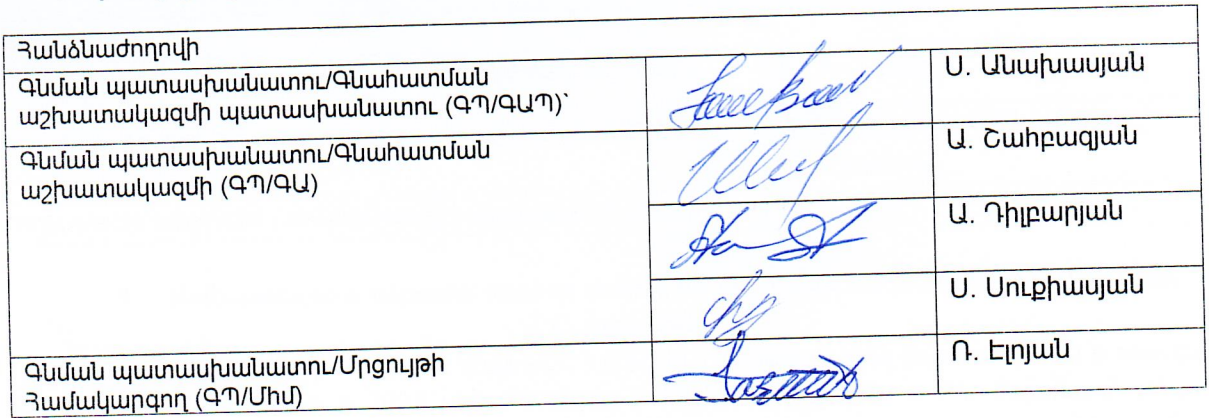 Հանձնաժողովի
Գնման պատասխանատու/Գնահատման
աշխատակազմի պատասխանատու (ԳՊ/ԳԱՊ)՝
Ս. Անախասյան
Գնման պատասխանատու/Գնահատման
աշխատակազմի (ԳՊ/ԳԱ)
Ա. Շահբազյան
Ա. Դիլբարյան
Ս. Սուքիասյան
Գնման պատասխանատու/Մրցույթի
Համակարգող (ԳՊ/Մհմ)
Ռ. Էլոյան